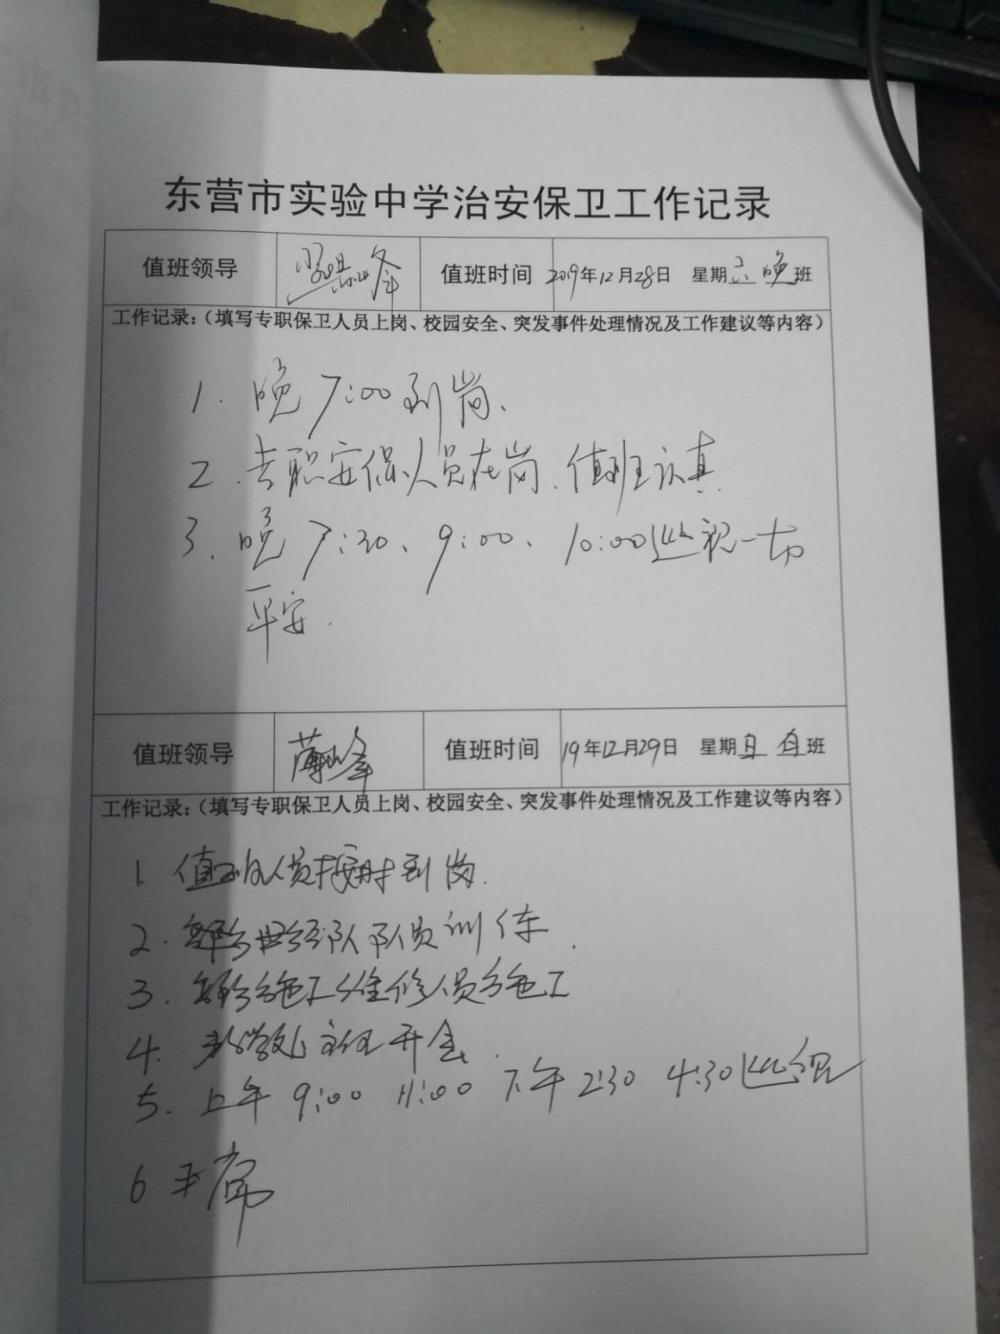 东营市实验中学治安保卫工作记录
值班领导 值班时间 2019年12月28日 星期六晚班
工作记录:(填写专职保卫人员上岗、校园安全、突发事件处理情况及工作建议等内容)
1. 晚7:00到岗、
2. 专职安保人员在岗、值班认真
3. 晚7:30、9:00、10:00巡视一切
平安.
值班领导 薄峰 值班时间 19年12月29日 星期日白班
工作记录:(填写专职保卫人员上岗、校园安全、突发事件处理情况及工作建议等内容)
1. 值班人员按时到岗.
2. 部分 队队员训练.
3. 部分施工维修人员施工
4. 主任开会.
5. 上午9:00 11:00 下午2:30 4:30巡
6